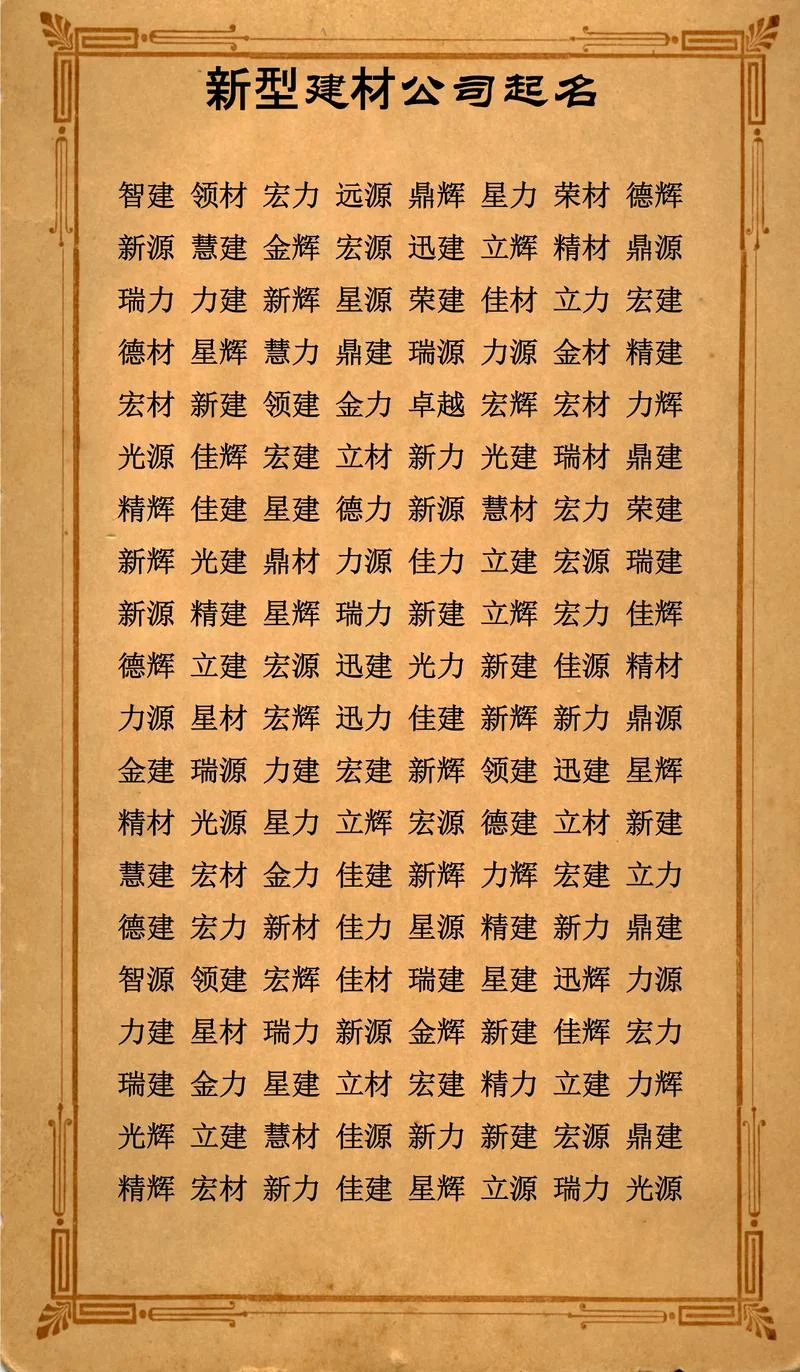 新型建材公司起名
智建 领材 宏力 远源 鼎辉 星力 荣材 德辉
新源 慧建 金辉 宏源 迅建 立辉 精材 鼎源
瑞力 力建 新辉 星源 荣建 佳材 立力 宏建
德材 星辉 慧力 鼎建 瑞源 力源 金材 精建
宏材 新建 领建 金力 卓越 宏辉 宏材 力辉
光源 佳辉 宏建 立材 新力 光建 瑞材 鼎建
精辉 佳建 星建 德力 新源 慧材 宏力 荣建
新辉 光建 鼎材 力源 佳力 立建 宏源 瑞建
新源 精建 星辉 瑞力 新建 立辉 宏力 佳辉
德辉 立建 宏源 迅建 光力 新建 佳源 精材
力源 星材 宏辉 迅力 佳建 新辉 新力 鼎源
金建 瑞源 力建 宏建 新辉 领建 迅建 星辉
精材 光源 星力 立辉 宏源 德建 立材 新建
慧建 宏材 金力 佳建 新辉 力辉 宏建 立力
德建 宏力 新材 佳力 星源 精建 新力 鼎建
智源 领建 宏辉 佳材 瑞建 星建 迅辉 力源
力建 星材 瑞力 新源 金辉 新建 佳辉 宏力
瑞建 金力 星建 立材 宏建 精力 立建 力辉
光辉 立建 慧材 佳源 新力 新建 宏源 鼎建
精辉 宏材 新力 佳建 星辉 立源 瑞力 光源